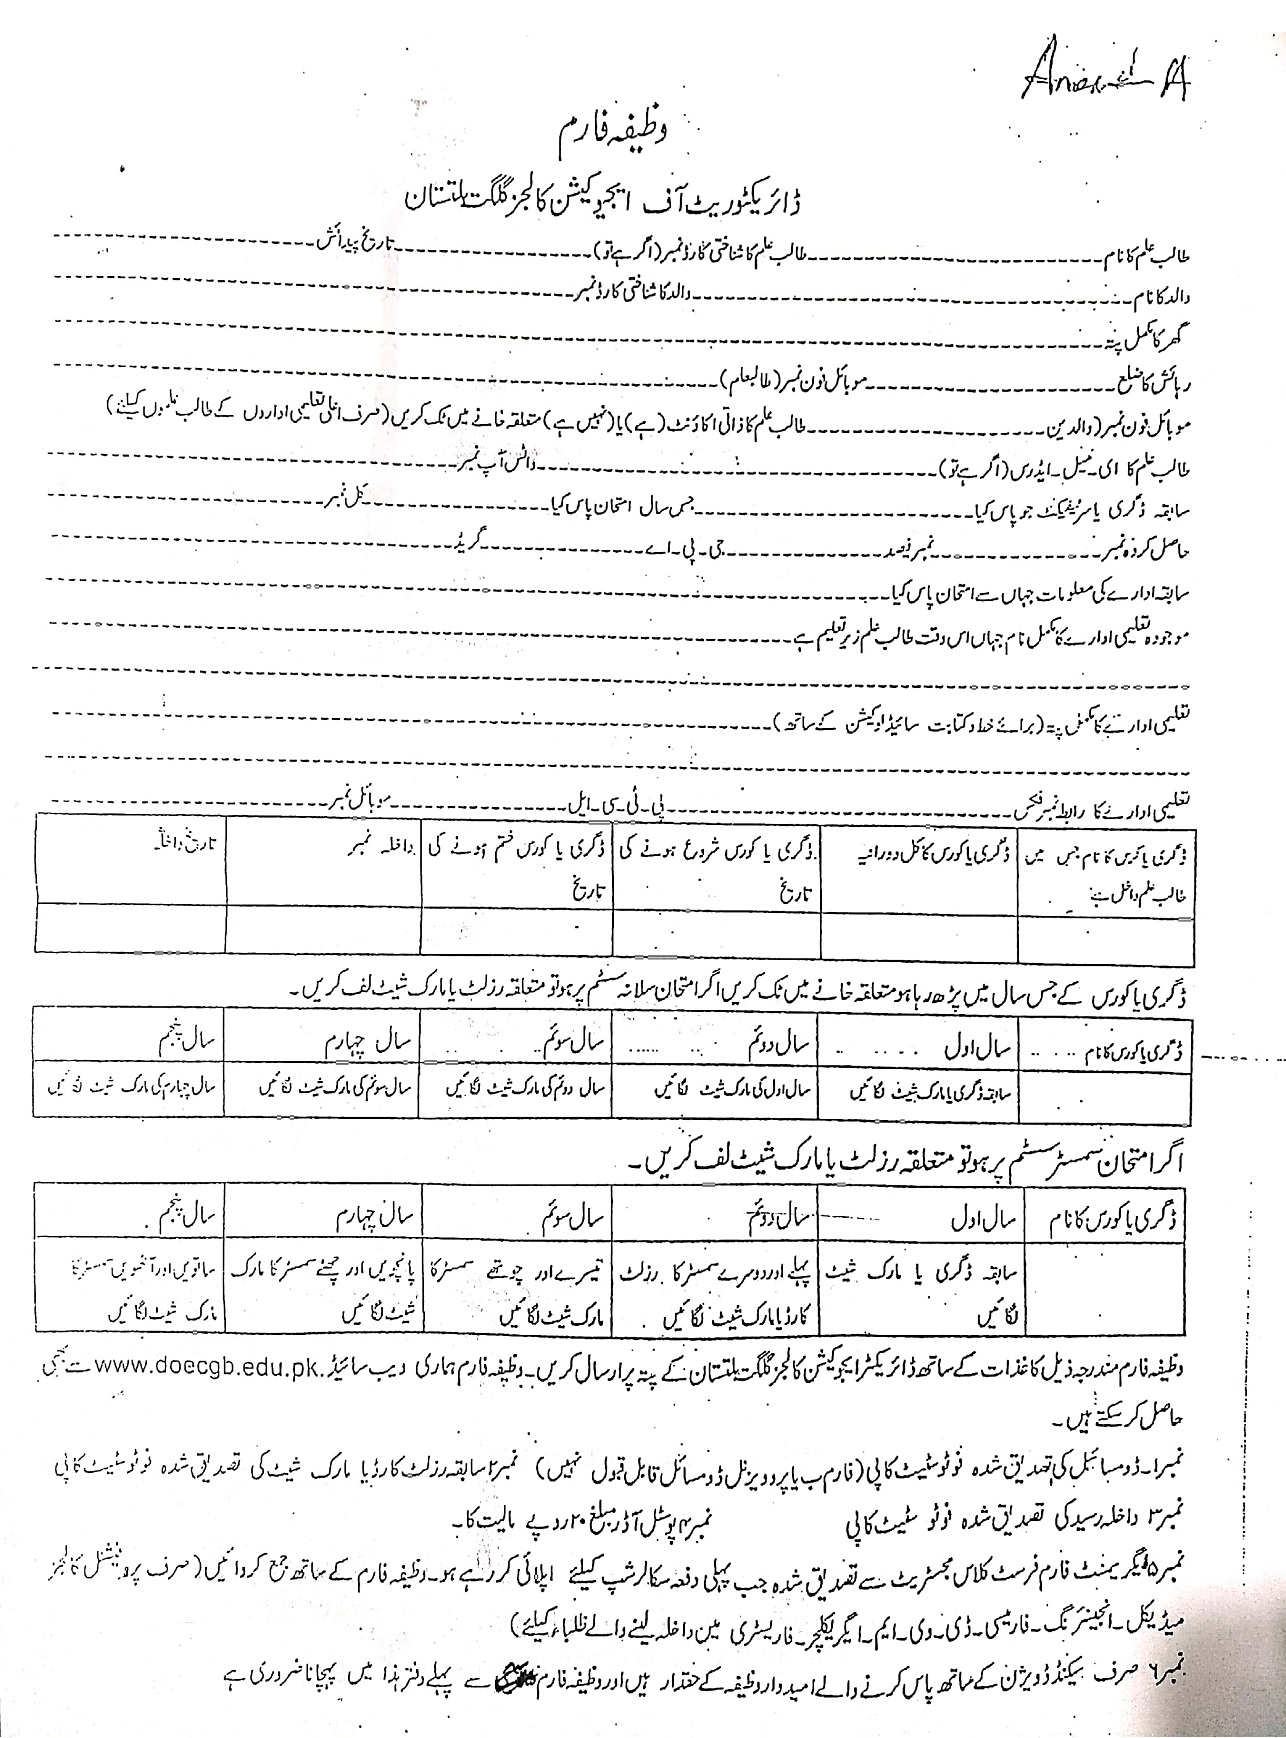 وظیفہ فارم
ڈائریکٹوریٹ آف ایجوکیشن کالجز گلگت بلتستان
طالب علم کا نام ---------- طالب علم کا شناختی کارڈ نمبر (اگر ہے تو) ---------- تاریخ پیدائش ----------
والد کا نام ---------- والد کا شناختی کارڈ نمبر ----------
گھر کا مکمل پتہ ----------
رہائش کا ضلع ---------- موبائل فون نمبر (طالبعلم) ----------
موبائل فون نمبر (والدین ---------- طالب علم کا ذاتی اکاؤنٹ (ہے) یا (نہیں ہے) متعلقہ خانے میں ٹک کریں (صرف اعلیٰ تعلیمی اداروں کے طالب علموں کیلئے)
طالب علم کا ای۔ میل۔ ایڈرس (اگر ہے تو) ---------- واٹس آپ نمبر ----------
سابقہ ڈگری یا سرٹیفکیٹ جو پاس کیا ---------- جس سال امتحان پاس کیا ---------- کل نمبر ----------
حاصل کردہ نمبر ---------- نمبر فیصد ---------- جی۔ پی۔ اے ---------- گریڈ ----------
سابقہ ادارے کی معلومات جہاں سے امتحان پاس کیا ----------
موجودہ تعلیمی ادارے کا مکمل نام جہاں اس وقت طالب علم زیر تعلیم ہے ----------
تعلیمی ادارے کا مکمل پتہ (برائے خط و کتابت سائیڈ لوکیشن کے ساتھ) ----------
تعلیمی ادارے کا رابطہ نمبر فکس ---------- پی۔ ٹی۔ سی۔ ایل ---------- موبائل نمبر ----------
ڈگری یا کورس کا نام جس میں طالب علم داخل ہے: ڈگری یا کورس کا کل دورانیہ ڈگری یا کورس شروع ہونے کی تاریخ ڈگری یا کورس ختم ہونے کی تاریخ داخلہ نمبر تاریخ داخلہ
ڈگری یا کورس کے جس سال میں پڑھ رہا ہو متعلقہ خانے میں ٹک کریں اگر امتحان سالانہ سسٹم پر ہو تو متعلقہ رزلٹ یا مارک شیٹ لف کریں۔
ڈگری یا کورس کا نام سال اول سال دوئم سال سوئم سال چہارم سال پنجم
سابقہ ڈگری یا مارک شیٹ لگائیں سال اول کی مارک شیٹ لگائیں سال دوئم کی مارک شیٹ لگائیں سال سوئم کی مارک شیٹ لگائیں سال چہارم کی مارک شیٹ لگائیں
اگر امتحان سمسٹر سسٹم پر ہو تو متعلقہ رزلٹ یا مارک شیٹ لف کریں۔
ڈگری یا کورس کا نام سال اول سال دوئم سال سوئم سال چہارم سال پنجم
سابقہ ڈگری یا مارک شیٹ لگائیں پہلے اور دوسرے سمسٹر کا رزلٹ کارڈ یا مارک شیٹ لگائیں تیسرے اور چوتھے سمسٹر کا مارک شیٹ لگائیں پانچویں اور چھٹے سمسٹر کا مارک شیٹ لگائیں ساتویں اور آٹھویں سمسٹر کا مارک شیٹ لگائیں
وظیفہ فارم مندرجہ ذیل کاغذات کے ساتھ ڈائریکٹر ایجوکیشن کالجز گلگت بلتستان کے پتہ پر ارسال کریں۔ وظیفہ فارم ہماری ویب سائیڈ www.doecgb.edu.pk. سے بھی
حاصل کر سکتے ہیں۔
نمبر۱۔ ڈومسائیل کی تصدیق شدہ فوٹو سٹیٹ کاپی (فارم ب یا پروویزنل ڈومسائل قابل قبول نہیں) نمبر۲ سابقہ رزلٹ کارڈ یا مارک شیٹ کی تصدیق شدہ فوٹو سٹیٹ کاپی
نمبر۳ داخلہ رسید کی تصدیق شدہ فوٹو سٹیٹ کاپی نمبر۴ پوسٹل آڈر مبلغ ۲۰ روپے مالیت کا۔
نمبر۵ ایگریمنٹ فارم فرسٹ کلاس مجسٹریٹ سے تصدیق شدہ جب پہلی دفعہ سکالرشپ کیلئے اپلائی کر رہے ہو۔ وظیفہ فارم کے ساتھ جمع کروائیں (صرف پروفیشنل کالجز
میڈیکل۔ انجینئرنگ۔ فارمیسی۔ ڈی۔ وی۔ ایم۔ ایگریکلچر۔ فاریسٹری مین داخلہ لینے والے طلباء کیلئے)
نمبر۶ صرف سیکنڈ ڈویژن کے ساتھ پاس کرنے والے امیدوار وظیفہ کے حقدار ہیں اور وظیفہ فارم سے پہلے دفتر ہذا میں پہچانا ضروری ہے